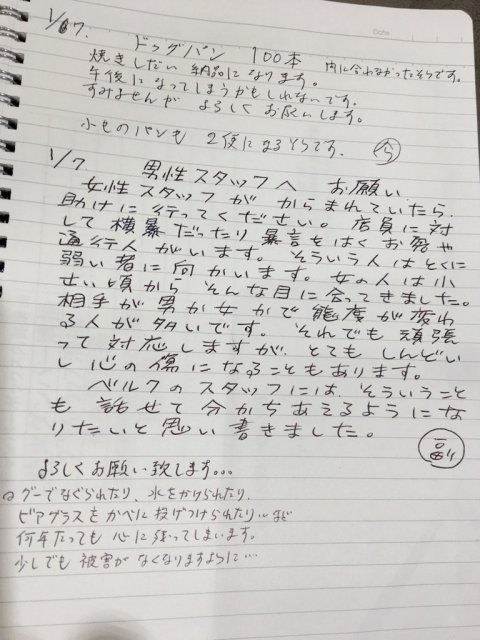 1/7.
ドッグパン 100本 間に合わなかったそうです。
焼きしだい 納品になります。
午後になってしまうかもしれないです。
すみませんが よろしくお願いします。
小ものパンも 2便になるそうです。
1/7. 男性スタッフへ お願い
女性スタッフが からまれていたら、
助けに行ってください。店員に対
して横暴だったり暴言をはくお客や
通行人がいます。そういう人はとくに
弱い者に向かいます。女の人は小
さい頃から そんな目に合ってきました。
相手が男か女かで態度が変わ
る人が多いです。それでも頑張
って対応しますが、とてもしんどい
し心の傷になることもあります。
ベルクのスタッフには、そういうこと
も 話せて分かちあえるようにな
りたいと思い書きました。
副
よろしくお願い致します...
グーでなぐられたり、水をかけられたり、
ビアグラスをかべに投げつけられたり..など
何年たっても 心に残ってしまいます。
少しでも 被害が なくなりますように…